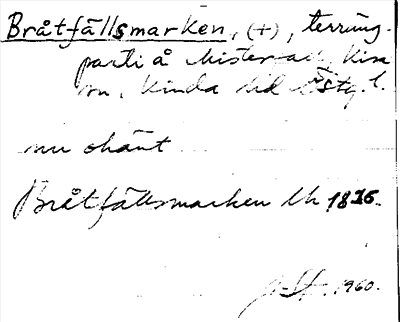 Bråtfällsmarken, (+), terräng-
parti å Misterfall, Kisa
sn, Kinda hd Östg. l.
nu okänt
Bråtfällsmarken Lk 1836.
1960.